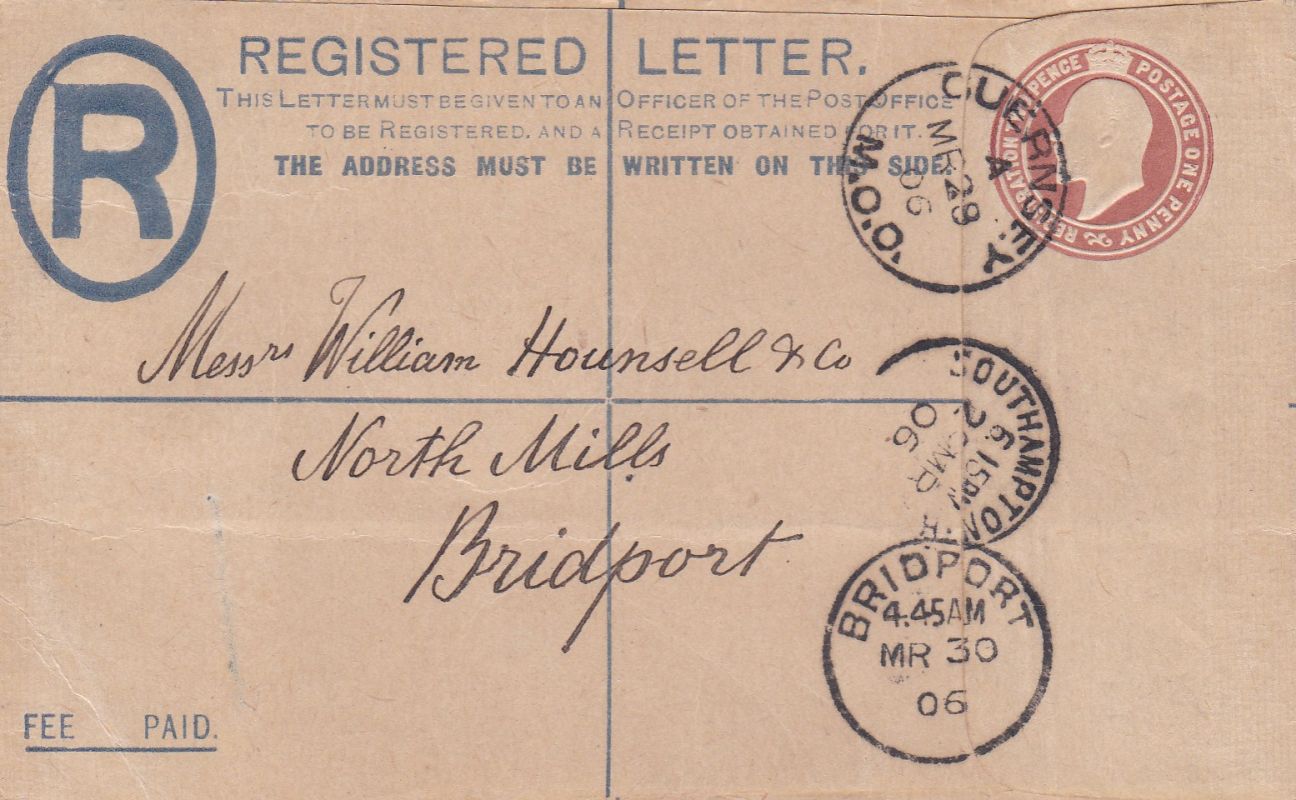 R
REGISTERED LETTER.
THIS LETTER MUST BE GIVEN TO AN OFFICER OF THE POST OFFICE
TO BE REGISTERED, AND A RECEIPT OBTAINED FOR IT.
THE ADDRESS MUST BE WRITTEN ON THIS SIDE.
PENCE POSTAGE ONE PENNY
GUERNSEY
A
MR 29
06
M.O.O.
Messrs William Hounsell & Co
North Mills
Bridport
SOUTHAMPTON
6 15PM
MR
06
BRIDPORT
4.45AM
MR 30
06
FEE PAID.